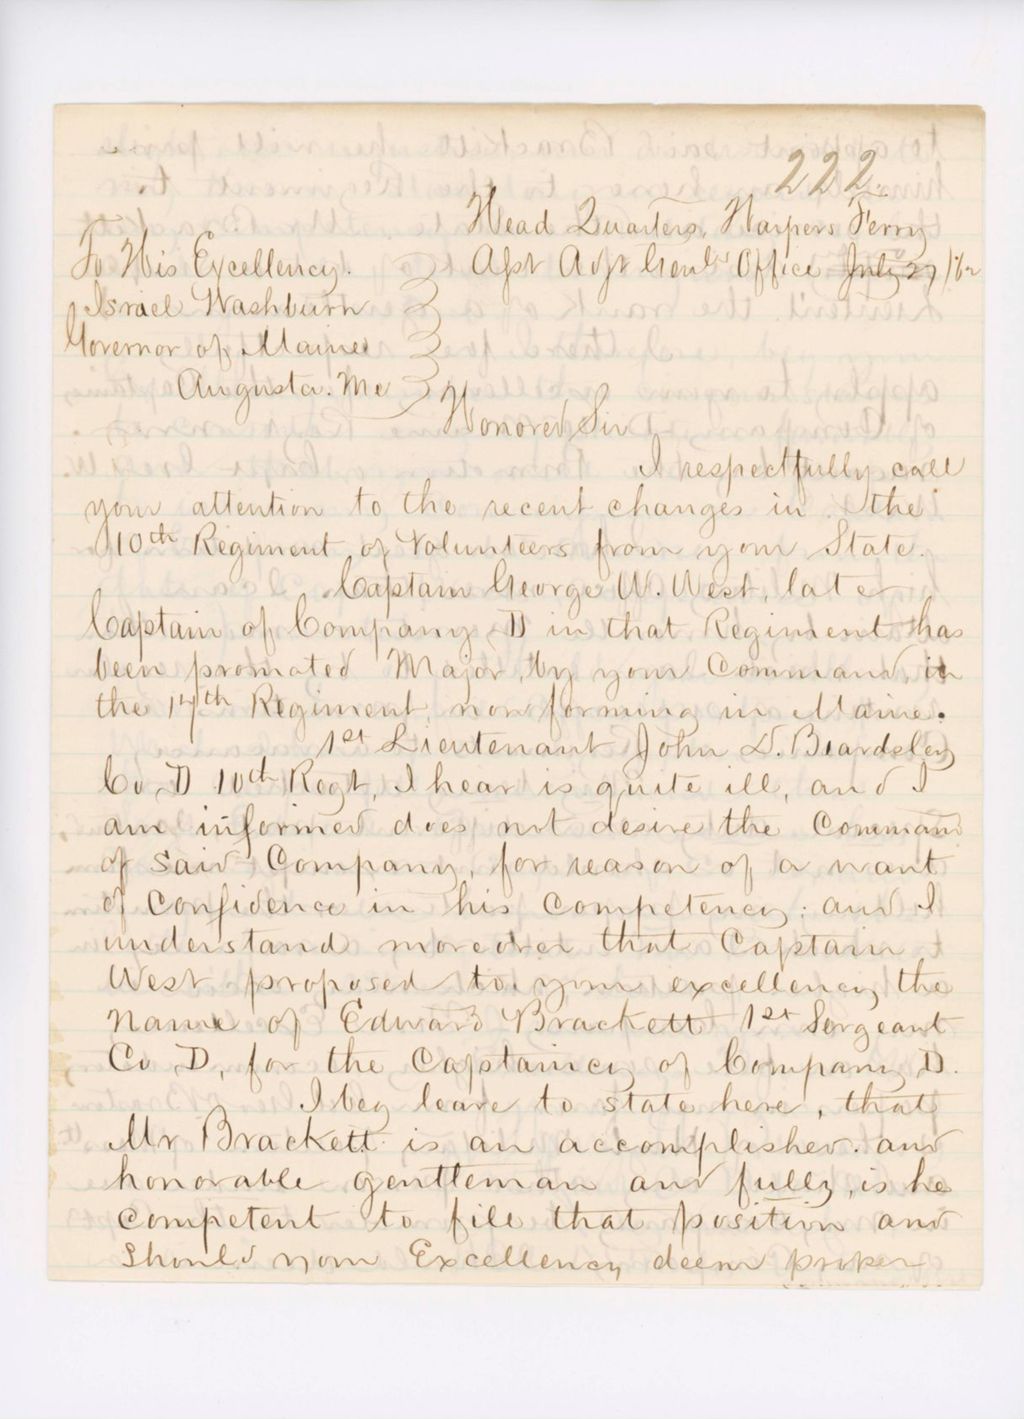 222.
Head Quarters, Harpers Ferry
Asst Adjt Genls Office July 27/62
To His Excellency.
Israel Washburn
Governor of Maine
Augusta. Me
Honored Sir
I respectfully call
your attention to the recent changes in the
10th Regiment of Volunteers from your State.
Captain George W. West, late
Captain of Company D in that Regiment has
been promoted Major, by your Command, in
the 17th Regiment, now forming in Maine.
1st Lieutenant John D. Beardsley
Co D 10th Regt, I hear is quite ill, and I
am informed does not desire the Command
of said Company, for reason of a want
of Confidence in his Competency: and I
understand moreover that Captain
West proposed to your excellency the
name of Edward Brackett 1st Sergeant
Co D, for the Captaincy of Company D.
I beg leave to state here, that
Mr Brackett is an accomplished and
honorable gentleman and fully, is he
Competent to fill that position and
Should your Excellency deem proper